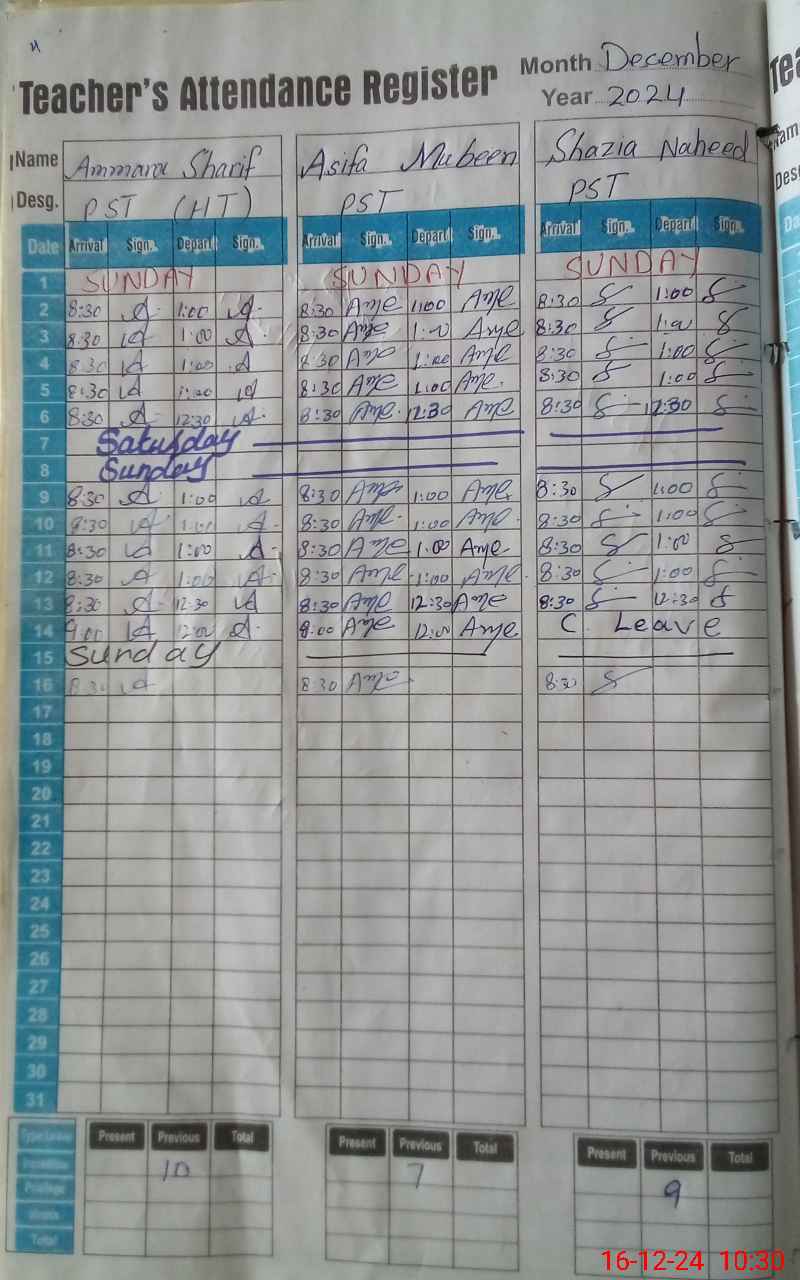 Teacher's Attendance Register Month December
Year 2024
Name Ammara Sharif Asifa Mubeen Shazia Naheed
Desg. PST (HT) PST PST
Date Arrival Sign. Depart Sign. Arrival Sign. Depart Sign. Arrival Sign. Depart Sign.
1 SUNDAY SUNDAY SUNDAY
2 8:30 1:00 8:30 1:00 8:30 1:00
3 8:30 1:00 8:30 1:00 8:30 1:00
4 8:30 1:00 8:30 1:00 8:30 1:00
5 8:30 1:00 8:30 1:00 8:30 1:00
6 8:30 12:30 8:30 12:30 8:30 12:30
7 Saturday
8 Sunday
9 8:30 1:00 8:30 1:00 8:30 1:00
10 8:30 1:00 8:30 1:00 8:30 1:00
11 8:30 1:00 8:30 1:00 8:30 1:00
12 8:30 1:00 8:30 1:00 8:30 1:00
13 8:30 12:30 8:30 12:30 8:30 12:30
14 9:00 12:00 12:00 C. Leave
15 Sunday
16 8:30 8:30 8:30
17
18
19
20
21
22
23
24
25
26
27
28
29
30
31
Present Previous Total Present Previous Total Present Previous Total
10 7 9
Privilege
Total
16-12-24 10:30